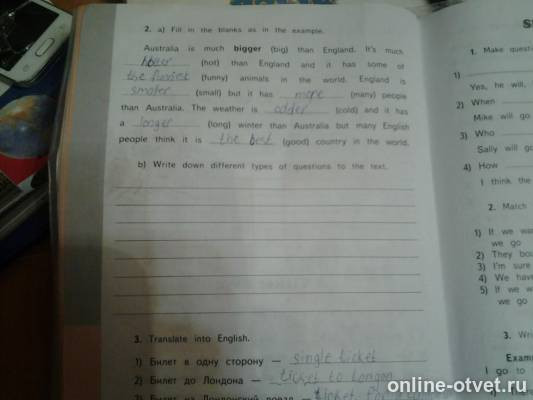 2. a) Fill in the blanks as in the example.
Australia is much bigger (big) than England. It's much
hotter (hot) than England and it has some of
the funniest (funny) animals in the world. England is
smaler (small) but it has more (many) people
than Australia. The weather is colder (cold) and it has
a longer (long) winter than Australia but many English
people think it is the best (good) country in the world.
b) Write down different types of questions to the text.
3. Translate into English.
1) Билет в одну сторону — single ticket
2) Билет до Лондона — ticket to London
1. Make questi
1)
Yes, he will,
2) When
Mike will go
3) Who
Sally will go
4) How
I think the
2. Match
1) If we wa
we go
2) They bou
3) I'm sure
4) We have
5) If we w
we go
3. Wri
Exam
I go to
online-otvet.ru